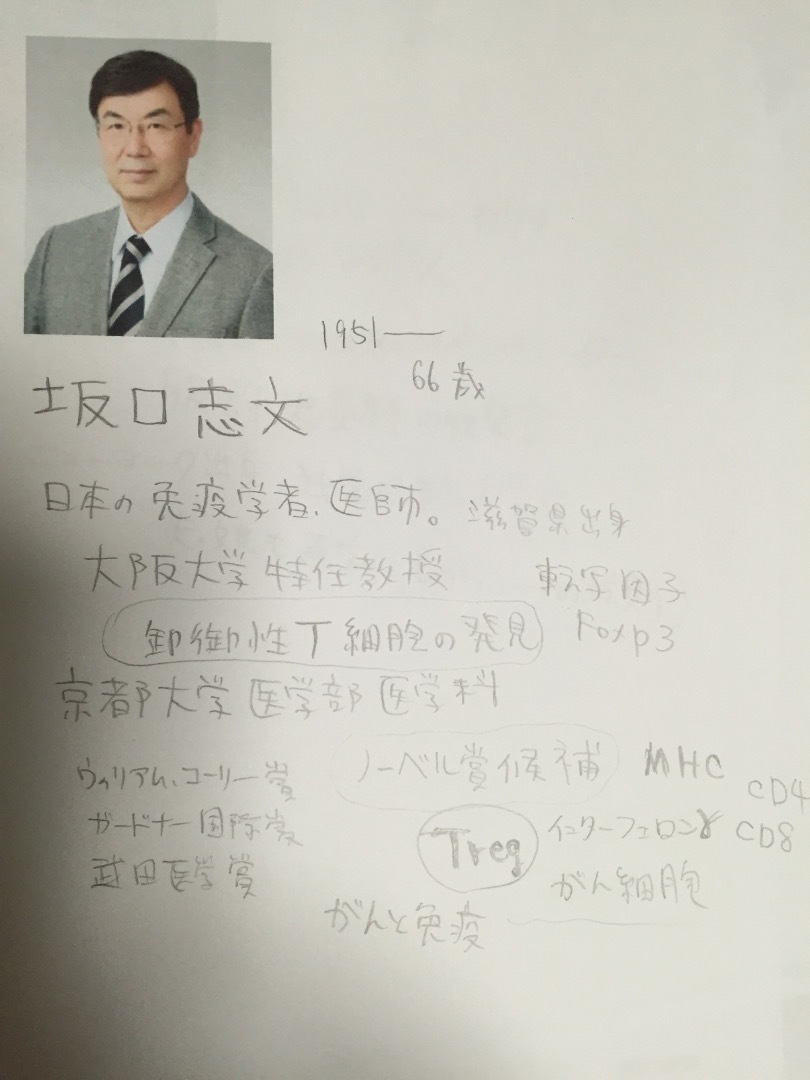 1951——
66歳
坂口志文
日本の免疫学者、医師。 滋賀県出身
大阪大学 特任教授
転写因子
御性T細胞の発見
Foxp3
京都大学 医学部 医学科
ノーベル賞候補
MHC
CD4
ウィリアム・コーリー賞
ガードナー国際賞
Treg
インターフェロンγ
CD8
武田医学賞
がん細胞
がんと免疫